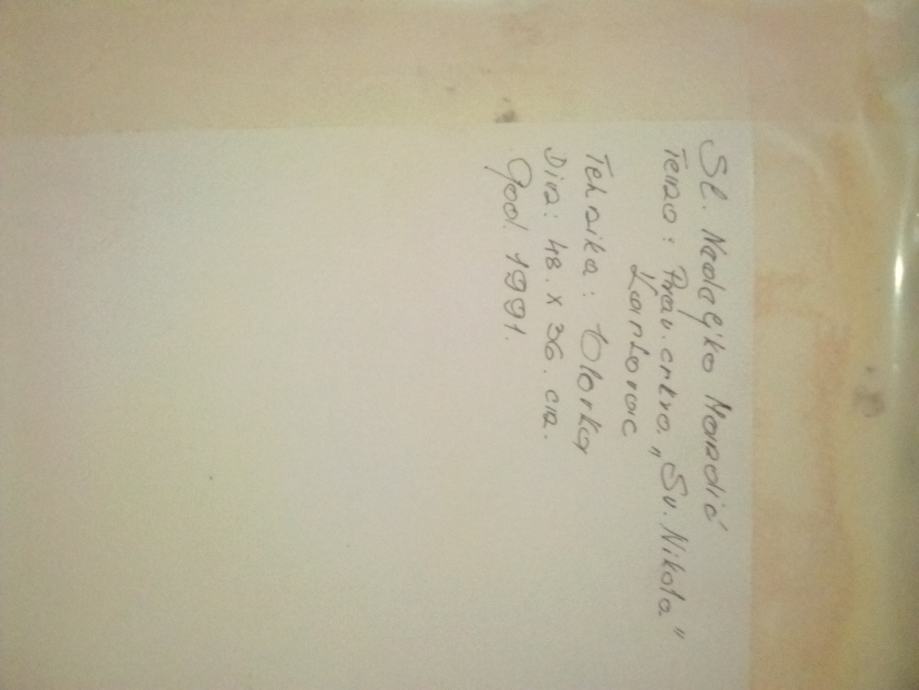 Sl. Nedeljko Mandić
Tema: Prav. crkva „Sv. Nikola"
Karlovac
Tehnika: Olovka
Dim: 48. x 36. cm.
God. 1991.